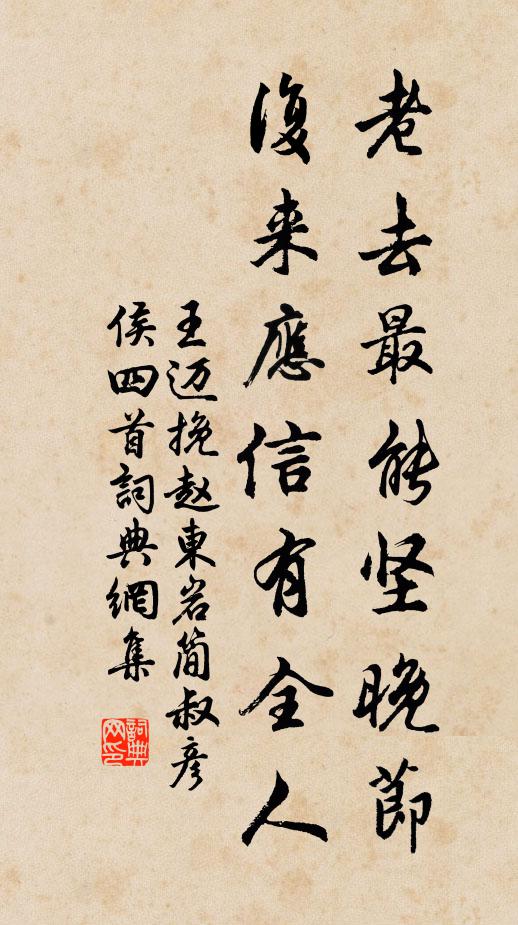 老去最能坚晚節
復来應信有全人
王迈挽赵東岩简叔彦
侯四首詞典網集
詞典網印